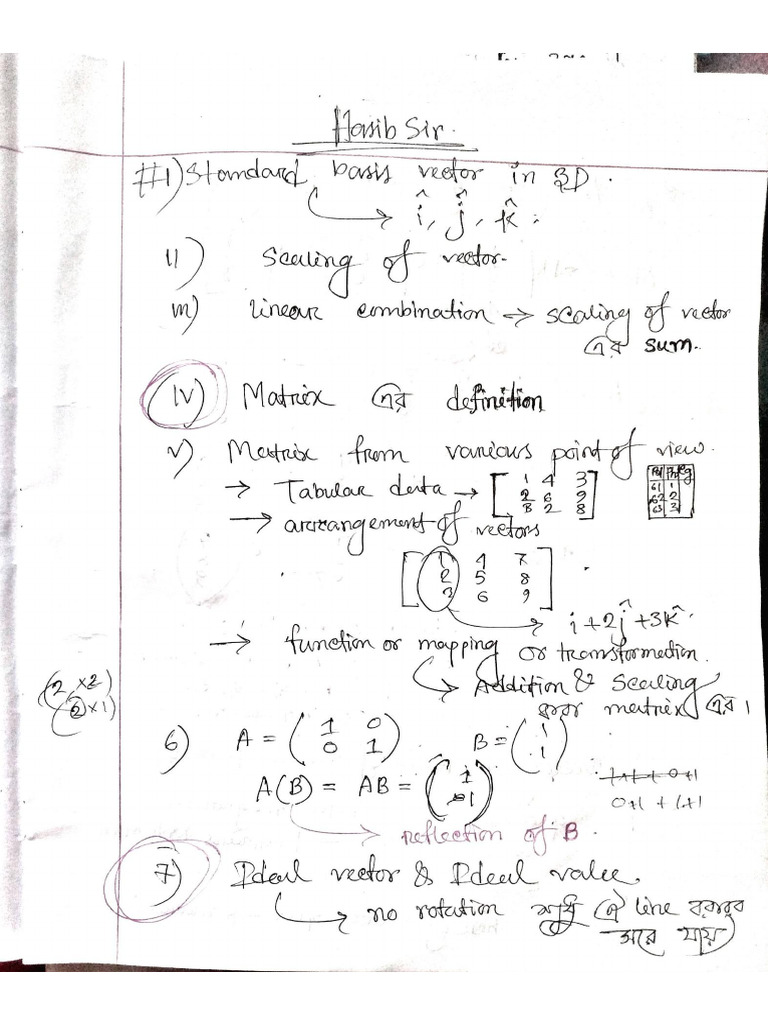 Hasib Sir.
#1) Standard basis vector in 3D.
î, ĵ, k̂.
II) Scaling of vector.
III) Linear combination → scaling of vector
এর sum.
IV) Matrix এর definition
V) Matrix from various point of view.
→ Tabular data → [1 4 3
2 6 9
B 2 8]
61 1
62 2
63 3
→ arrangement of vectors
[1 4 7
2 5 8
3 6 9]
i + 2ĵ + 3k̂
→ function or mapping or transformation.
Addition & Scaling
matrix এর ।
(2 × 2)
(2 × 1)
6) A = (1 0
0 1) B = (1
1)
A(B) = AB = (1
-1)
1+1+0+1
0+1 + 1+1
reflection of B.
7) Ideal vector & Ideal value.
no rotation শুধু ঐ line বরাবর
সরে যায়